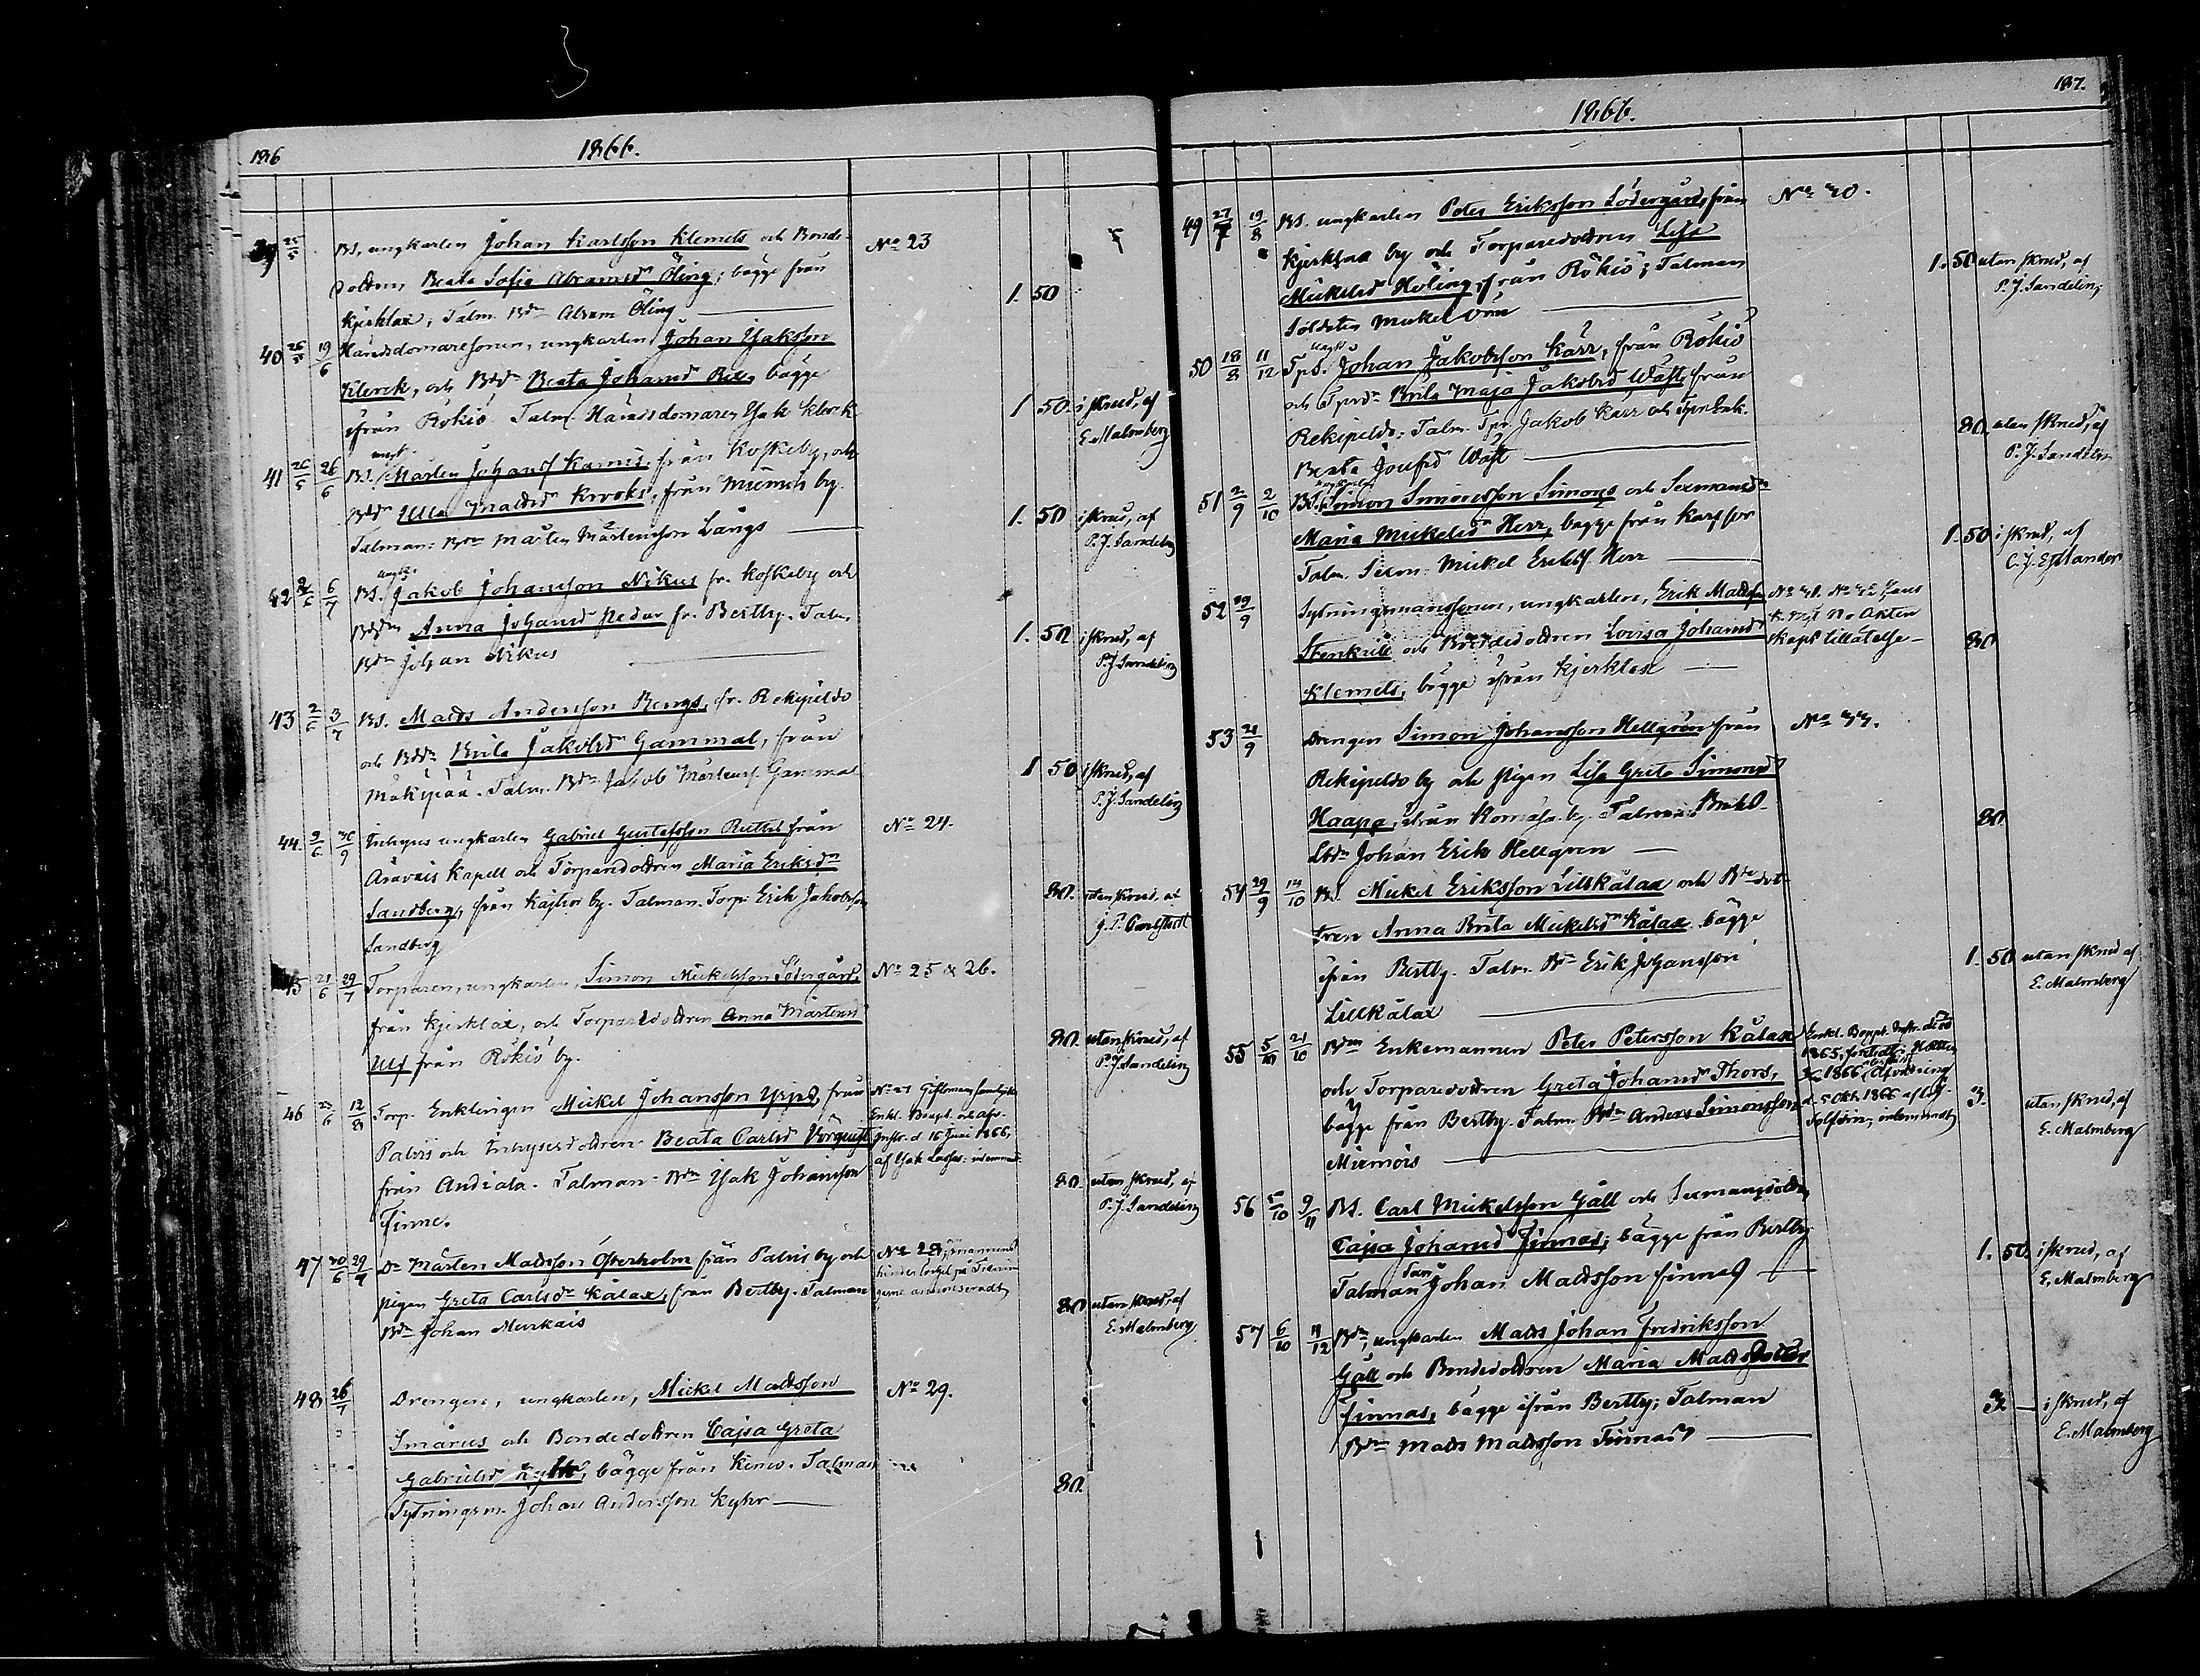 186
1866.
39 25/5 BS. ungkarlen Johan Karlsson Klemets och Bonde- No 23
dottren Beata Sofia Abramsdr Öling; bägge från
Kjerklax; Talm. Bdn Abram Öling 1. 50
40 26/5 19/6 Häradsdomaresonen, ungkarlen Johan Isaksson
Klerck, och Bddr Beata Johansdr Rex, bägge
ifrån Rökiö Talm. Häradsdomaren Isak Klerck 1 50. i skrud, af
E. Malmberg
ungk.
41 26/5 26/6 BS. Mårten Johanss Kamis, från Koskeby, och
Bddr Ulla Maldsdr Krooks, från Miemois by.
Talman: Bdn Mårten Mårtensson Långs 1. 50 i skrud, af
P. J. Sandelin
ungk.
42 2/6 6/7 BS. Jakob Johansson Nikus fr. Koskeby och
Bddr Anna Johansdr Pedar fr. Bertby. Talm.
Bdn Johan Nikus 1. 50 i skrud, af
P. J. Sandelin
43 2/6 3/7 BS. Matts Andersson Bengs, fr. Rekipeldo
och Bddr Brita Jakobsdr Gammal, från
Mäkipää. Talm. Bdn Jakob Mårtenss. Gammal 1 50 i skrud, af
P. J. Sandelin
44. 9/6 30/9 Inhyses ungkarlen Gabriel Gustafsson Ruths från No 24.
Oravais Kapell och Torparedottren Maria Eriksdr
Sandberg, från Kajhor by. Talman. Torp. Erik Jakobsson
Sandberg 80. utan skrud, af
J. P. Carlstedt
45 21/6 29/7 Torparen, ungkarlen, Simon Mickelsson Södergård, No 25 & 26.
från Kjerklax, och Torparedottren Anna Mårtensdr
Ulf från Rökiö by. 80. utan skrud, af
P. J. Sandelin
46 23/6 12/8 Torp. Enklingen Mickel Johansson Yrjas, från No 27 Giftomans samtycke
Palvis och Inhysesdottren Beata Carlsdr Vörquist Enkl. Bouppt. och afv.
från Andiala. Talman. Bdn Isak Johansson Instr. d 16 Juni 1866,
Finne. 80. utan skrud, af
P. J. Sandelin
47 30/6 29/7 Dr Mårten Mattsson Österholm från Palvis by och No 28,
pigen Greta Carlsdr Kålax, från Bertby. Talman
Bdn Johan Murkais 80 utan skrud, af
E. Malmberg
48 26/7 Drengen, ungkarlen, Mickel Mattsson No 29.
Smarus och Bondedottren Cajsa Greta
Gabrielsdr Kyhn, bägge från Kimo. Talman
Sytningsm. Johan Andersson Kyhn 80.
187.
1866.
49 27/7 19/8 BS. ungkarlen Peter Eriksson Södergård, från No 30.
Kjerklax by och Torparedottren Lisa
Mickelsdr Höling, från Rökiö; Talman 1. 50 utan skrud, af
Soldaten Mickel Örn P. J. Sandelin
ungk
50 18/8 11/12 TpS. Johan Jakobsson Kärr, från Rökiö
och Tprdr Brita Maja Jakobsdr Wäst, från
Rekipeldo; Talm. Tpr. Jakob Kärr och Tpr Enk. 80. utan skrud, af
Beata Josefsdr Wäst P. J. Sandelin
ungkarlen
51 2/9 2/10 BS. Simon Simonsson Simons och Sexmansdr
Maria Mickelsdr Herr, bägge från Karfsor
Talm. Sexm. Mickel Erikss. Herr 1. 50 i skrud, af
C. J. Estlander
52 29/9 Sytningsmanssonen, ungkarlen, Erik Mattsson No 31. No 32
Stenkull och Bondedottren Lovisa Johansdr
Klemets, bägge ifrån Kjerklax 80
53 21/9 Drengen Simon Johansson Hellgren från No 33.
Rekipeldo by och pigen Lisa Greta Simonsdr
Haapa, från Komossa by. Talman
Johan Erik Hellgren 80
54 29/9 14/10 BS. Mickel Eriksson Lillkålax och Bdedot-
tren Anna Brita Mickelsdr Kålax bägge
ifrån Bertby. Talm. Bdn Erik Johansson
Lillkålax 1. 50 utan skrud af
E. Malmberg
55 5/10 21/10 Bdn Enkemannen Peter Petersson Kålax Enkl. Bouppt. Instr.
och Torparedottren Greta Johansdr Thors, 1866, Afvittring
bägge från Bertby. Talm. Bdn Anders Simonsson d. 5 Okt. 1866 af
Miemois 3. utan skrud, af
E. Malmberg
56 5/10 9/11 BS. Carl Mickelsson Gäll och Sexmansdottr.
Cajsa Johansdr Finnas; bägge från Bertby
Talman Johan Mattsson Finnas 1. 50. i skrud, af
E. Malmberg
57 6/10 11/12 Bdn, ungkarlen Matts Johan Fredriksson
Gäll och Bondedottren Maria Mattsdotter
Finnas, bägge ifrån Bertby; Talman
Bdn Matts Mattsson Finnas 3. — i skrud, af
E. Malmberg